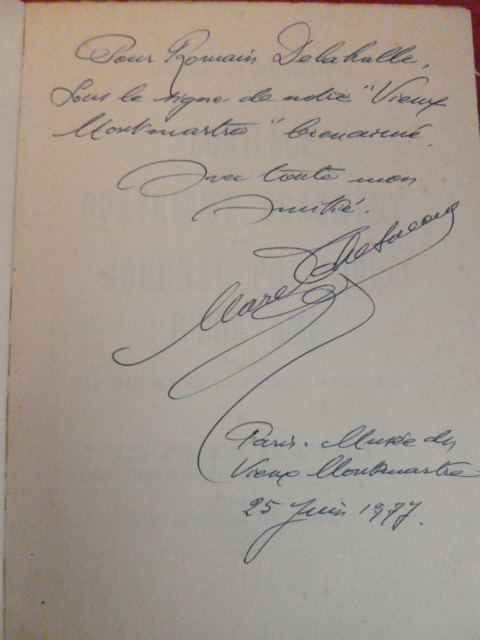 Pour Romain Delahalle,
Sous le signe de notre "Vieux
Montmartre"
Avec toute mon
Amitié.
Marcel
Paris. Musée du
Vieux Montmartre
25 Juin 1977.